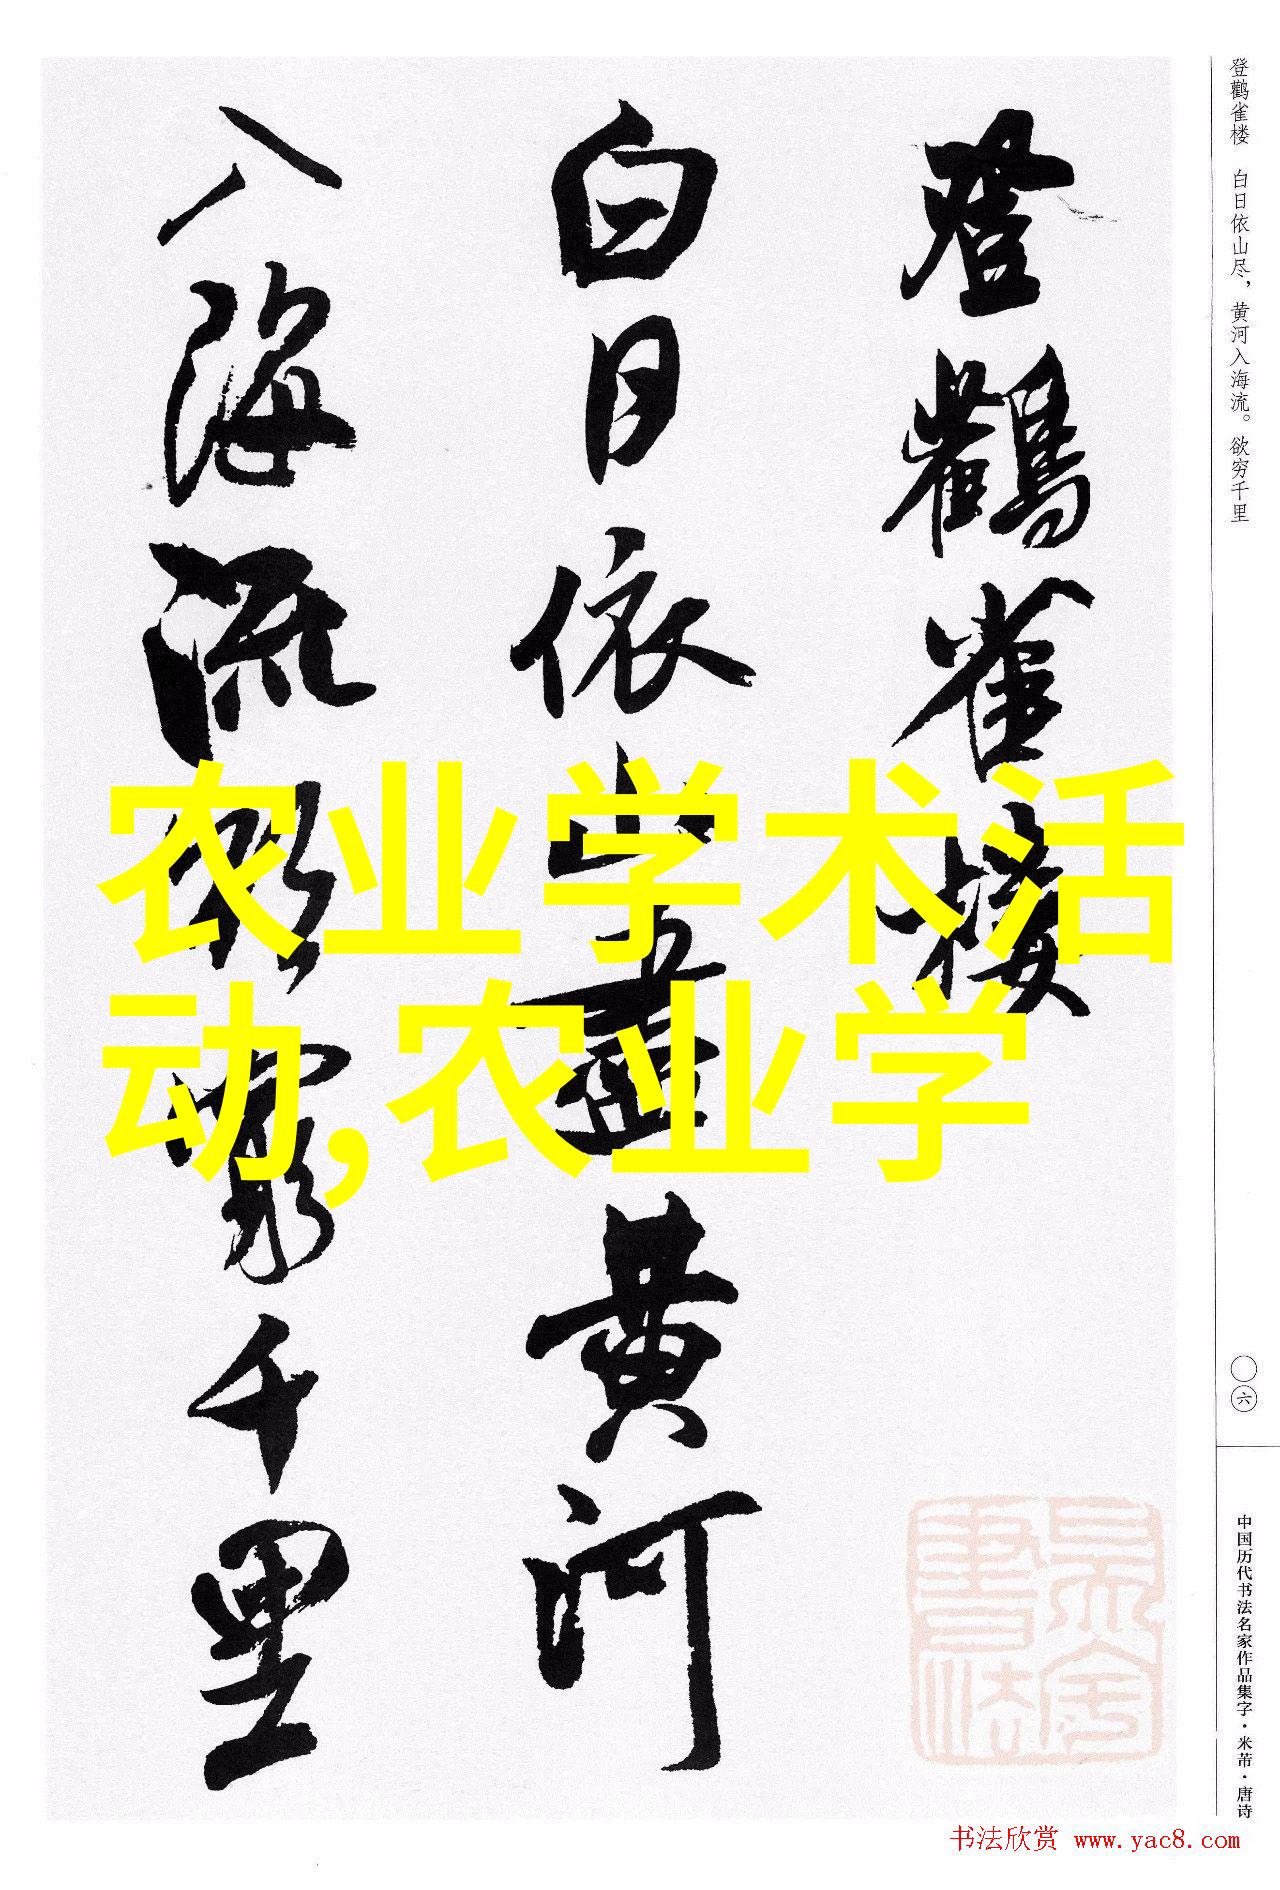 登鹳雀楼
白日依山尽黄河
入海流欲穷千里
农业学术活
动,农业学
登鹳雀楼 白日依山尽，黄河入海流。欲穷千里
〇六
中国历代书法名家作品集字·米芾·唐诗
书法欣赏 www.yac8.com